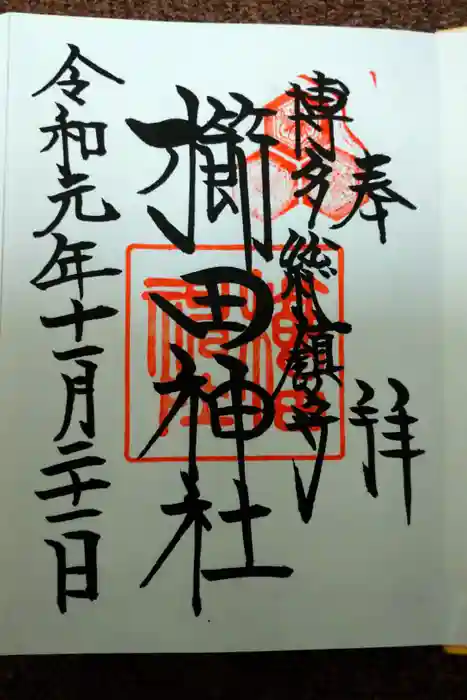 奉拝
博多総鎮守
櫛田神社
令和元年十一月二十一日